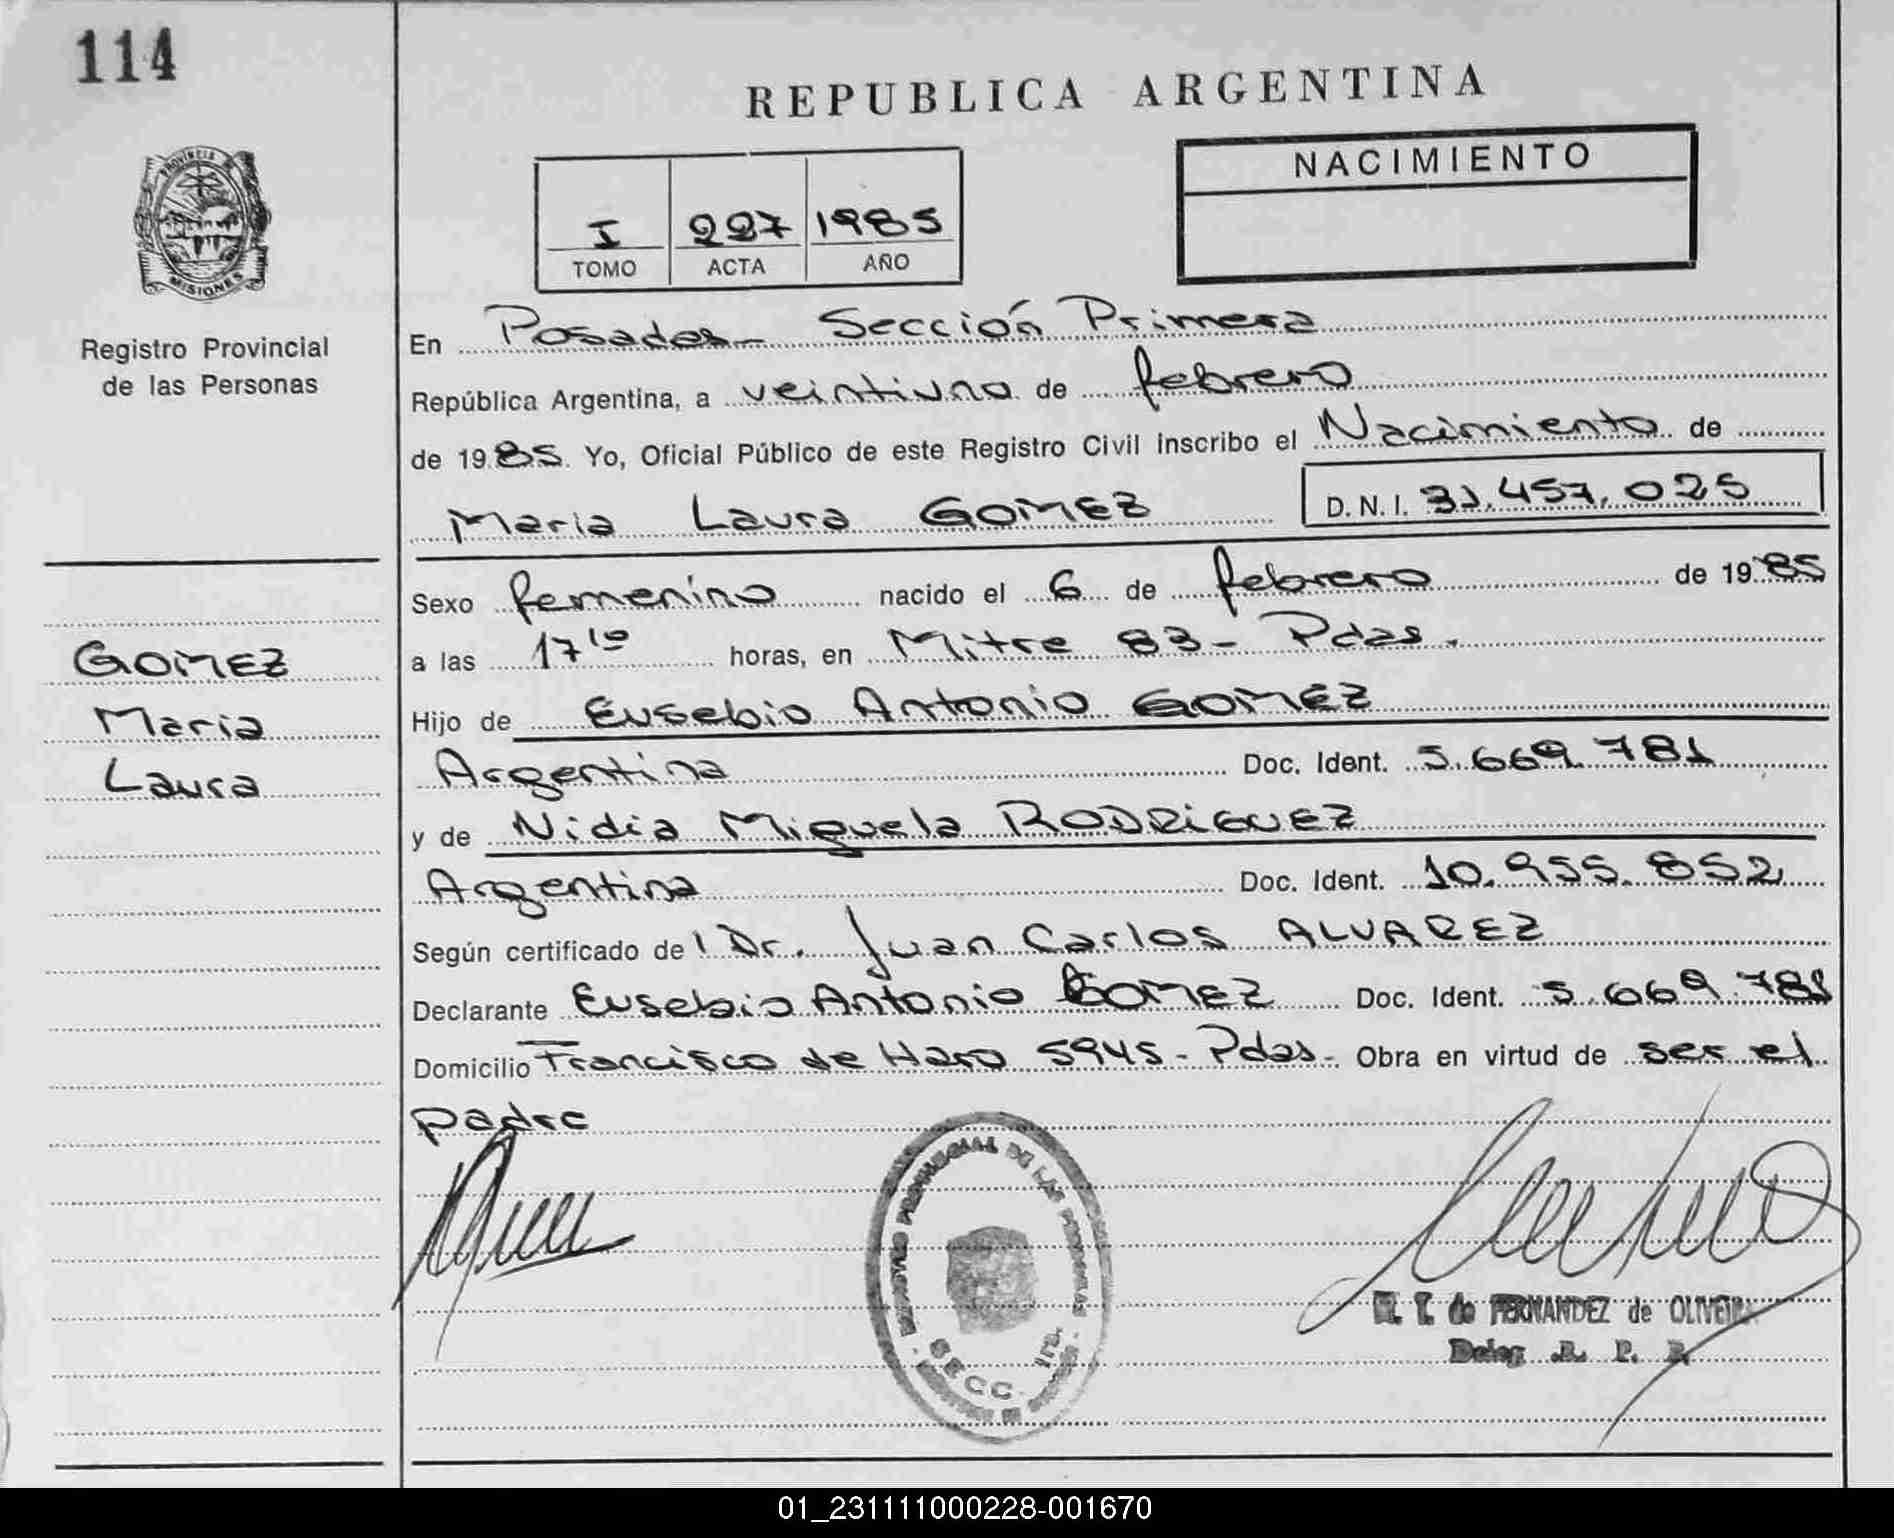 114
REPUBLICA ARGENTINA
NACIMIENTO
I 227 1985
TOMO ACTA AÑO
PROVINCIA
MISIONES
Registro Provincial
de las Personas
En Posadas - Sección Primera
República Argentina, a veintiuno de febrero
de 1985 Yo, Oficial Público de este Registro Civil inscribo el Nacimiento de
Maria Laura GOMEZ D. N. I. 31.457.025
Sexo femenino nacido el 6 de febrero de 1985
a las 17 10 horas, en Mitre 83 - Pdas.
Hijo de Eusebio Antonio GOMEZ
Argentina Doc. Ident. 5.669.781
y de Nidia Miguela RODRIGUEZ
Argentina Doc. Ident. 10.955.852
Según certificado de l Dr. Juan Carlos ALVAREZ
Declarante Eusebio Antonio GOMEZ Doc. Ident. 5.669.781
Domicilio Francisco de Haro 5945 - Pdas - Obra en virtud de ser el
padre
GOMEZ
Maria
Laura
PROVINCIAL DE LAS PERSONAS
SECC. 1ra.
de FERNANDEZ de OLIVEIRA
Deleg. R. P. P.
01_231111000228-001670